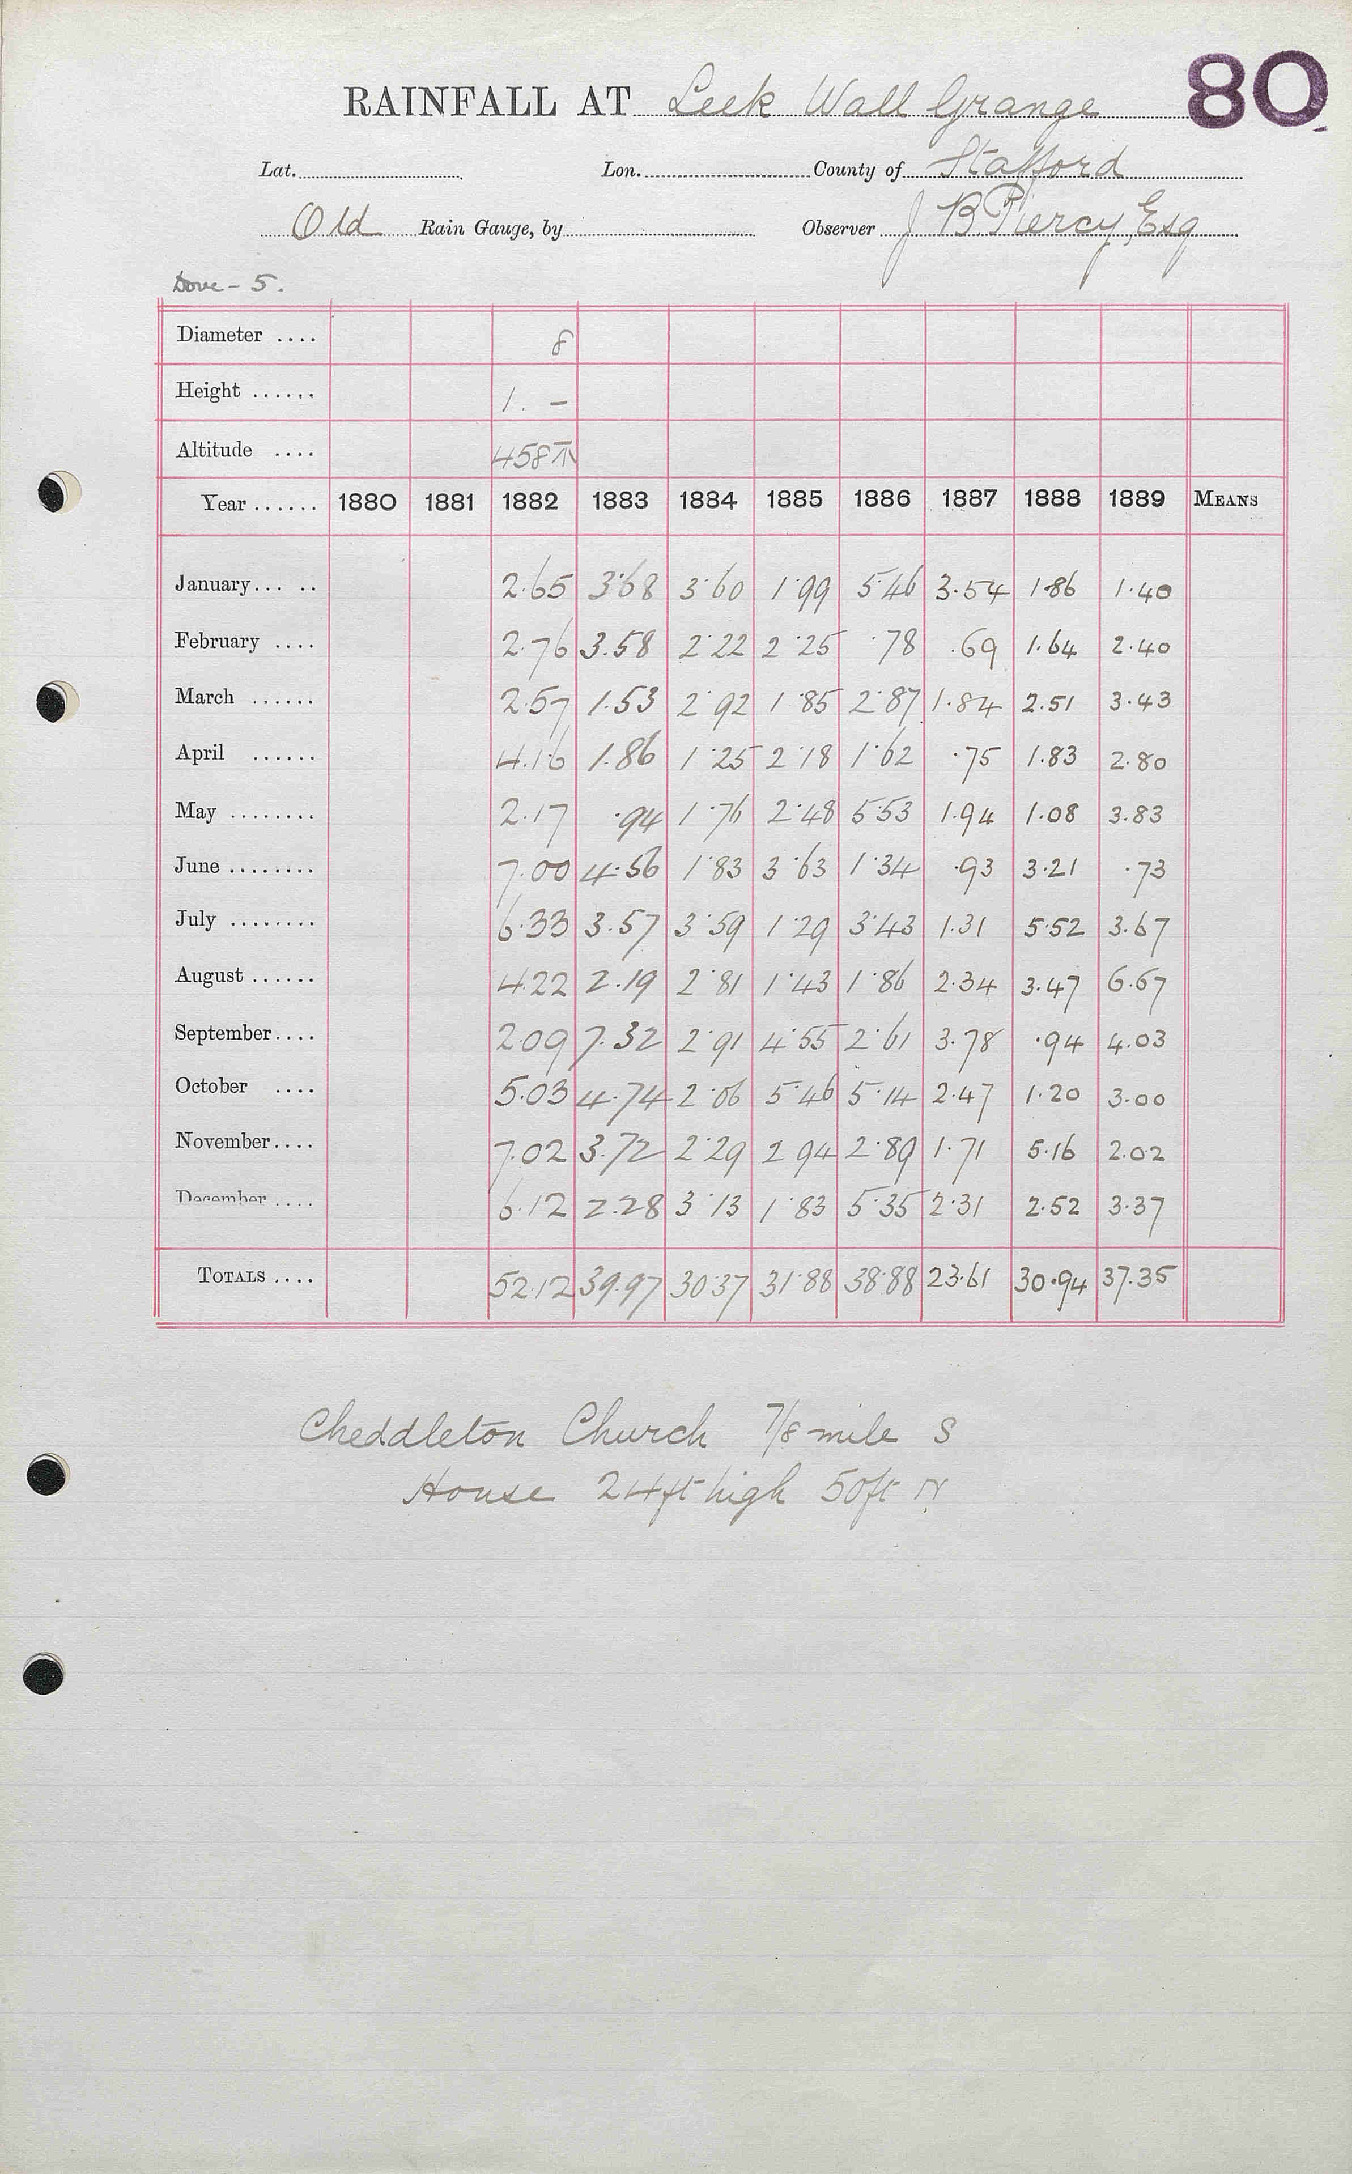 80
RAINFALL AT Leek Wall Grange
Lat. Lon. County of Stafford
Old Rain Gauge, by Observer J B Piercy, Esq
Dove - 5.
Diameter .... 8
Height ...... 1. -
Altitude .... 458
Year ...... 1880 1881 1882 1883 1884 1885 1886 1887 1888 1889 MEANS
January... .. 2.65 3.68 3.60 1.99 5.46 3.54 1.86 1.40
February .... 2.76 3.58 2.22 2.25 .78 .69 1.64 2.40
March ...... 2.57 1.53 2.92 1.85 2.87 1.84 2.51 3.43
April ...... 4.16 1.86 1.25 2.18 1.62 .75 1.83 2.80
May ........ 2.17 .94 1.76 2.48 5.53 1.94 1.08 3.83
June ........ 7.00 4.56 1.83 3.63 1.34 .93 3.21 .73
July ........ 6.33 3.57 3.59 1.29 3.43 1.31 5.52 3.67
August ...... 4.22 2.19 2.81 1.43 1.86 2.34 3.47 6.67
September.... 2.09 7.32 2.91 4.55 2.61 3.78 .94 4.03
October .... 5.03 4.74 2.06 5.46 5.14 2.47 1.20 3.00
November.... 7.02 3.72 2.29 2.94 2.89 1.71 5.16 2.02
December .... 6.12 2.28 3.13 1.83 5.35 2.31 2.52 3.37
TOTALS .... 52.12 39.97 30.37 31.88 38.88 23.61 30.94 37.35
Cheddleton Church 7/8 mile S
House 24ft high 50ft N